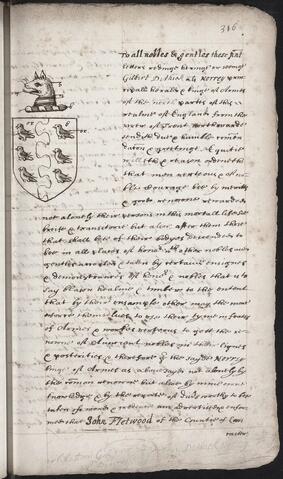 316
To all nobles & gentles these pnt
letters redinge hering or seinge
Gilbert Dethick als Norrey prin
cipall heralde & kinge of Armes
of the north partes of this
realme of England from the
river of Trent Northwardes
sendeth due & humble comen
dacon & greetinge Equitie
willeth & reason ordeineth
that men vertuous & of
noble courage bee by merits
& good renowne rewarded
not alonely their persons in this mortall life so
breife & transitorie but also after them those
that shall bee of their bodyes descended to
bee in all places of honor with other nobles and
gentles accepted & taken by certaine ensignes
& demonstrances of honor & nobles that is to
say blazon healme & timbre to the entent
that by their ensample other may the more
inforce themselves to use their tyme in feates
of Armes & workes vertuous to gett the re-
nowne of Auncient nobles in their lignes
& posterities & therefore I the sayde Norrey
kinge of Armes as abovesayde not alonely by
the comon renowne but also by mine owne
knowledge & by the reporte of others worthy to bee
taken of worde & credence am advertised & enfor
med that John Fletwood of the Countie of Lan
caster